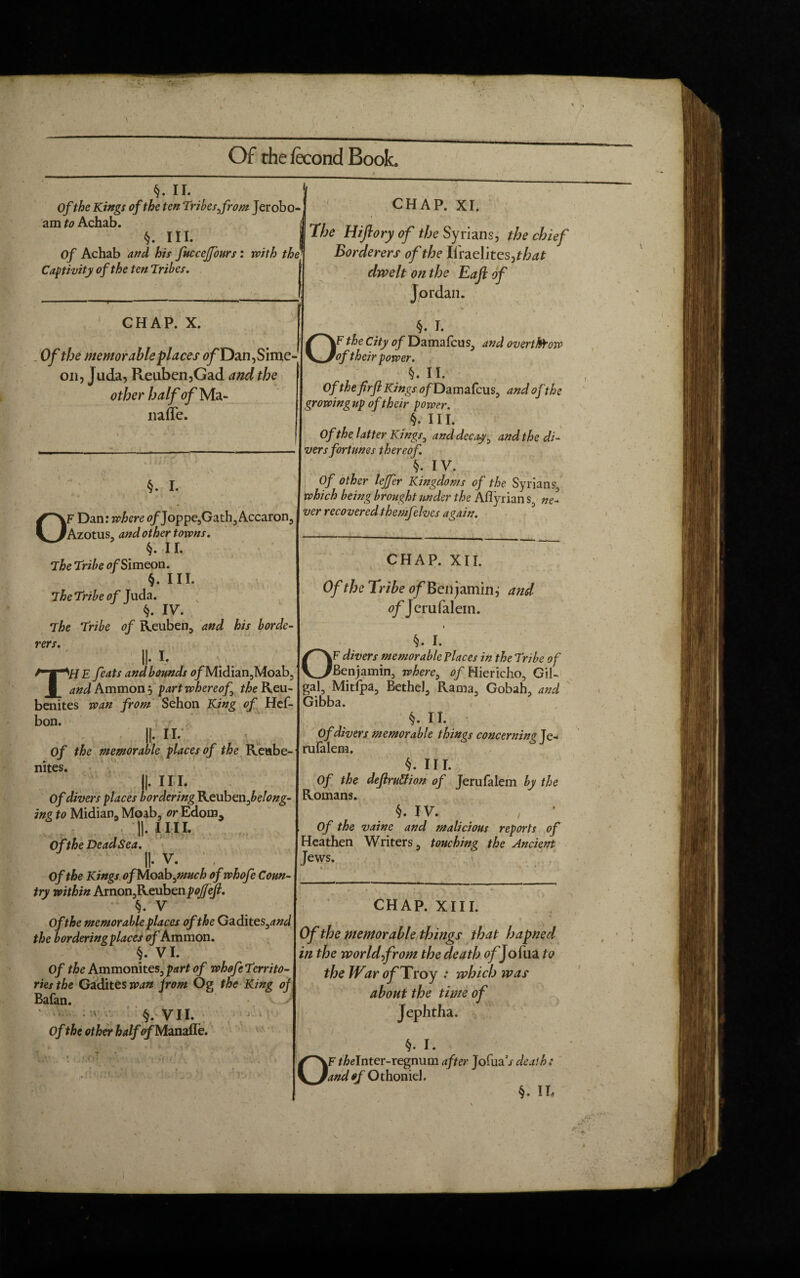 Of the ſecond Book.
§. II.
Of the Kings of the ten Tribes, from Jerobo-
am to Achab.
§. III.
Of Achab and his ſucceſſours: with the
Captivity of the ten Tribes.
CHAP. X.
Of the memorable places of Dan, Sime-
on, Juda, Reuben, Gad and the
other half of Ma-
naſſe.
§. I.
OF Dan: where of Joppe, Gath, Accaron,
Azotus, and other towns.
§. II.
The Tribe of Simeon.
§. III.
The Tribe of Juda.
§. IV.
The Tribe of Reuben, and his borde-
rers.
||. I.
THE ſeats and bounds of Midian, Moab,
and Ammon; part whereof, the Reu-
benites wan from Sehon King of Heſ-
bon.
||. II.
Of the memorable places of the Reube-
nites.
||. III.
Of divers places bordering Reuben, belong-
ing to Midian, Moab, or Edom,
||. IIII.
Of the Dead Sea.
||. V.
Of the Kings of Moab, much of whoſe Coun-
try within Arnon, Reuben poſſeſt.
§. V
Of the memorable places of the Gadites, and
the bordering places of Ammon.
§. VI.
Of the Ammonites, part of whoſe Territo-
ries the Gadites wan from Og the King of
Baſan.
§. VII.
Of the other half of Manaſſe.
CHAP. XI.
The Hiſtory of the Syrians, the chief
Borderers of the Iſraelites, that
dwelt on the Eaſt of
Jordan.
§. I.
OF the City of Damaſcus, and overthrow
of their power.
§. II.
Of the firſt Kings of Damaſcus, and of the
growing up of their power.
§. III.
Of the latter Kings, and decay, and the di-
vers fortunes thereof.
§. IV.
Of other leſſer Kingdoms of the Syrians,
which being brought under the Aſſyrians, ne-
ver recovered themſelves again.
CHAP. XII.
Of the Tribe of Benjamin, and
of Jeruſalem.
§. I.
OF divers memorable Places in the Tribe of
Benjamin, where, of Hiericho, Gil-
gal, Mitſpa, Bethel, Rama, Gobah, and
Gibba.
§. II.
Of divers memorable things concerning Je-
ruſalem.
§. III.
Of the deſtruction of Jeruſalem by the
Romans.
§. IV.
Of the vaine and malicious reports of
Heathen Writers, touching the Ancient
Jews.
CHAP. XIII.
Of the memorable things that hapned
in the world, from the death of Joſua to
the War of Troy : which was
about the time of
Jephtha.
§. I.
OF the Inter-regnum after Joſua's death:
and of Othoniel.
§. II.